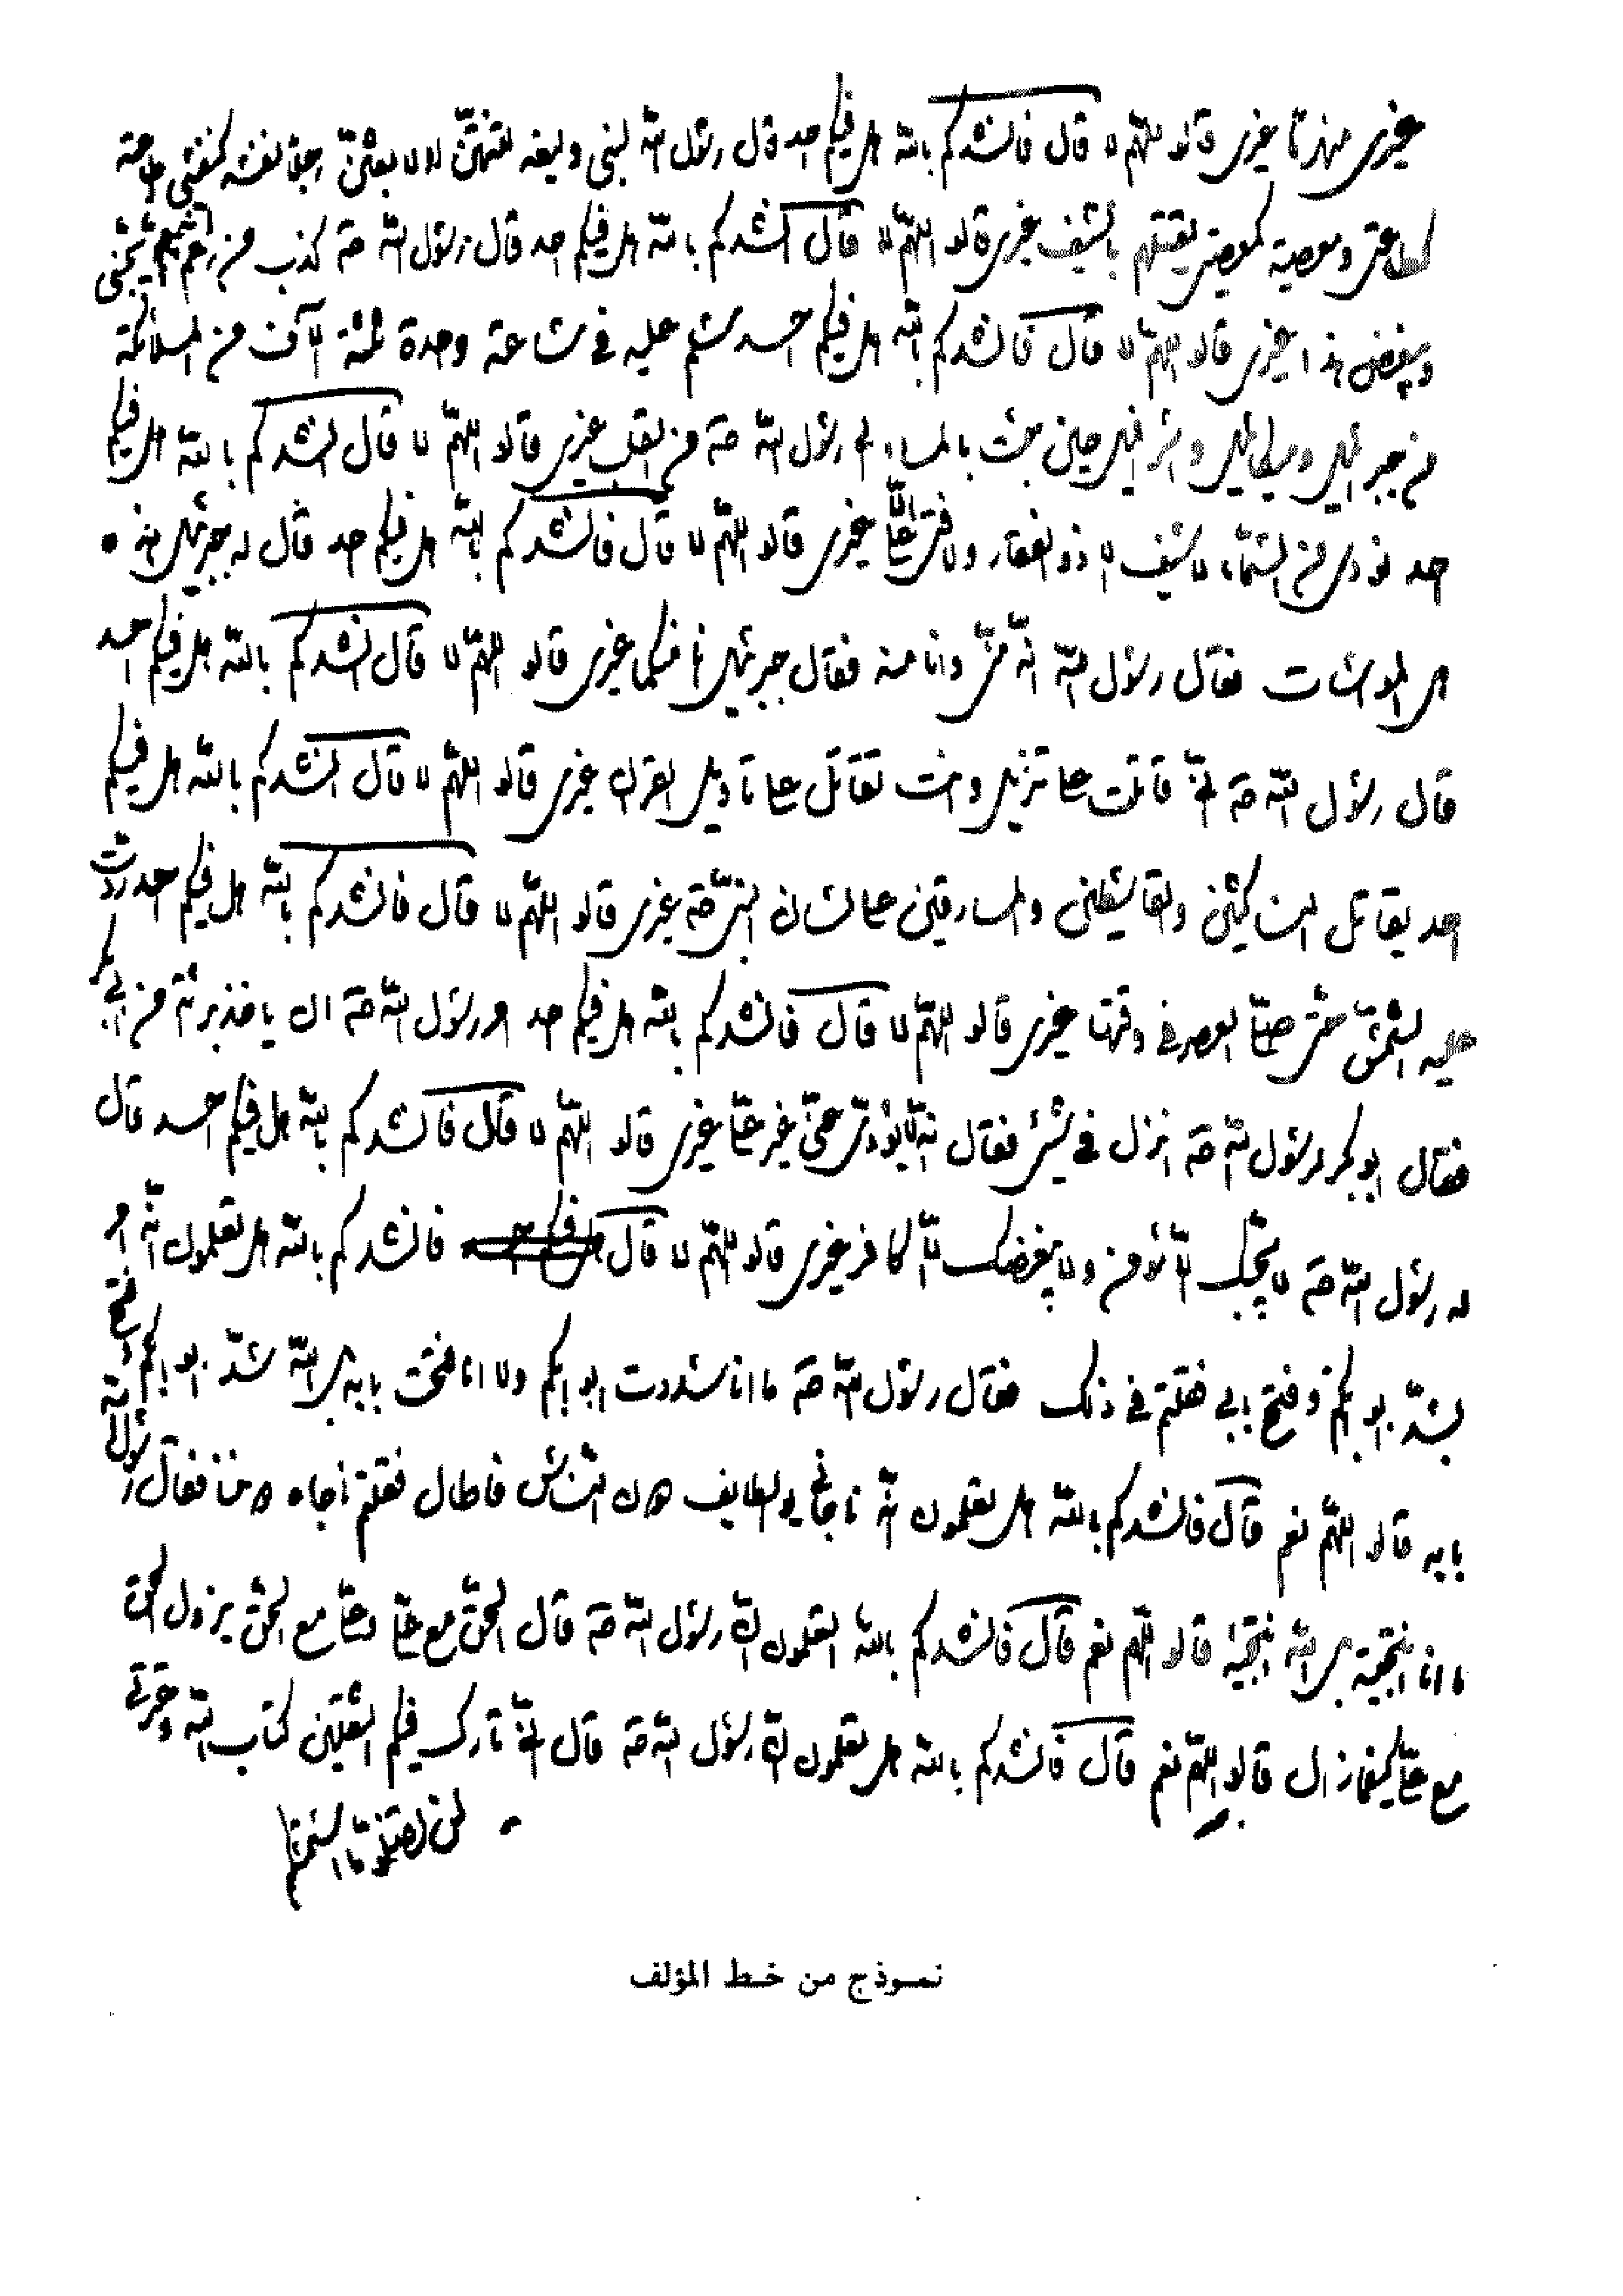 غيري منهزما غيري قالوا اللهم لا قال فانشدكم بالله هل فيكم احد قال رسول الله لبني وليعه لتنتهنّ او لابعثنّ رجلا نفسه كنفسي طاعته
كطاعتي ومعصيته كمعصيتي يقتلهم بالسيف غيري قالوا اللهم لا قال انشدكم بالله هل فيكم احد قال رسول الله صه كذب من زعم انه يحبّني
ويبغض هذا غيري قالوا اللهم لا قال فانشدكم بالله هل فيكم احد سلّم عليه في ساعة واحدة ثلثة آلاف من الملائكة
من جبرئيل وميكائيل واسرافيل حين جئت بالماء الى رسول الله صه من القليب غيري قالوا اللهم لا قال انشدكم بالله هل فيكم
احد نودي من السماء لا سيف الا ذوالفقار ولا فتى الا عليّ غيري قالوا اللهم لا قال فانشدكم بالله هل فيكم احد قال له جبرئيل هذه
هي المواسات فقال رسول الله انّه منّي وانا منه فقال جبرئيل انا منكما غيري قالوا اللهم لا قال انشدكم بالله هل فيكم احد
قال رسول الله صه انّي قاتلت على تنزيل وانت تقاتل على تاويل القران غيري قالوا اللهم لا قال انشدكم بالله هل فيكم
احد يقاتل الناكثين والقاسطين والمارقين على لسان النبيّ صه غيري قالوا اللهم لا قال فانشدكم بالله هل فيكم احد ردّت
عليه الشمس حتى صلّى العصر في وقتها غيري قالوا اللهم لا قال فانشدكم بالله هل فيكم احد امر رسول الله صه ان ياخذ برائة من ابي بكر
فقال ابو بكر يا رسول الله صه انزل في شيئ فقال انّه لا يؤدّي عنّي غير عليّ غيري قالوا اللهم لا قال فانشدكم بالله هل فيكم احد قال
له رسول الله صه لا يحبّك الا مؤمن ولا يبغضك الا كافر غيري قالوا اللهم لا قال فانشدكم بالله هل تعلمون انّه امر
بسدّ ابوابكم وفتح بابي فقلتم في ذلك فقال رسول الله صه ما انا سددت ابوابكم ولا انا فتحت بابه بل الله سدّ ابوابكم وفتح
بابه قالوا اللهم نعم قال فانشدكم بالله هل تعلمون انّه ناجاني يوم الطايف دون الناس فاطال فقلتم ناجاه دوننا فقال رسول الله
ما انا انتجيته بل الله انتجيه قالوا اللهم نعم قال فانشدكم بالله اتعلمون انّ رسول الله صه قال الحقّ مع عليّ وعليّ مع الحقّ يزول الحق
مع عليّ كيفما زال قالوا اللهم نعم قال فانشدكم بالله هل تعلمون انّ رسول الله صه قال انّي تارك فيكم الثقلين كتاب الله وعترتي
لن تضلّوا ما استمسكتم
نمـوذج من خـط المؤلف